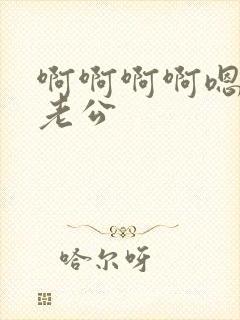 啊啊啊啊嗯
老公
哈尔呀